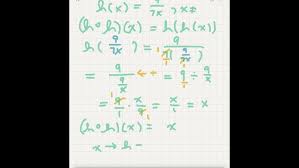 h(x) = 9/7x , x≠
(h∘h)(x) = h(h(x))
h(9/7x) = 9/7(9/7x)
= 9/(9/x) = 9/1 ÷ 9/x
= 9/1 · x/9 = x/1 = x
(h∘h)(x) = x
x → h –